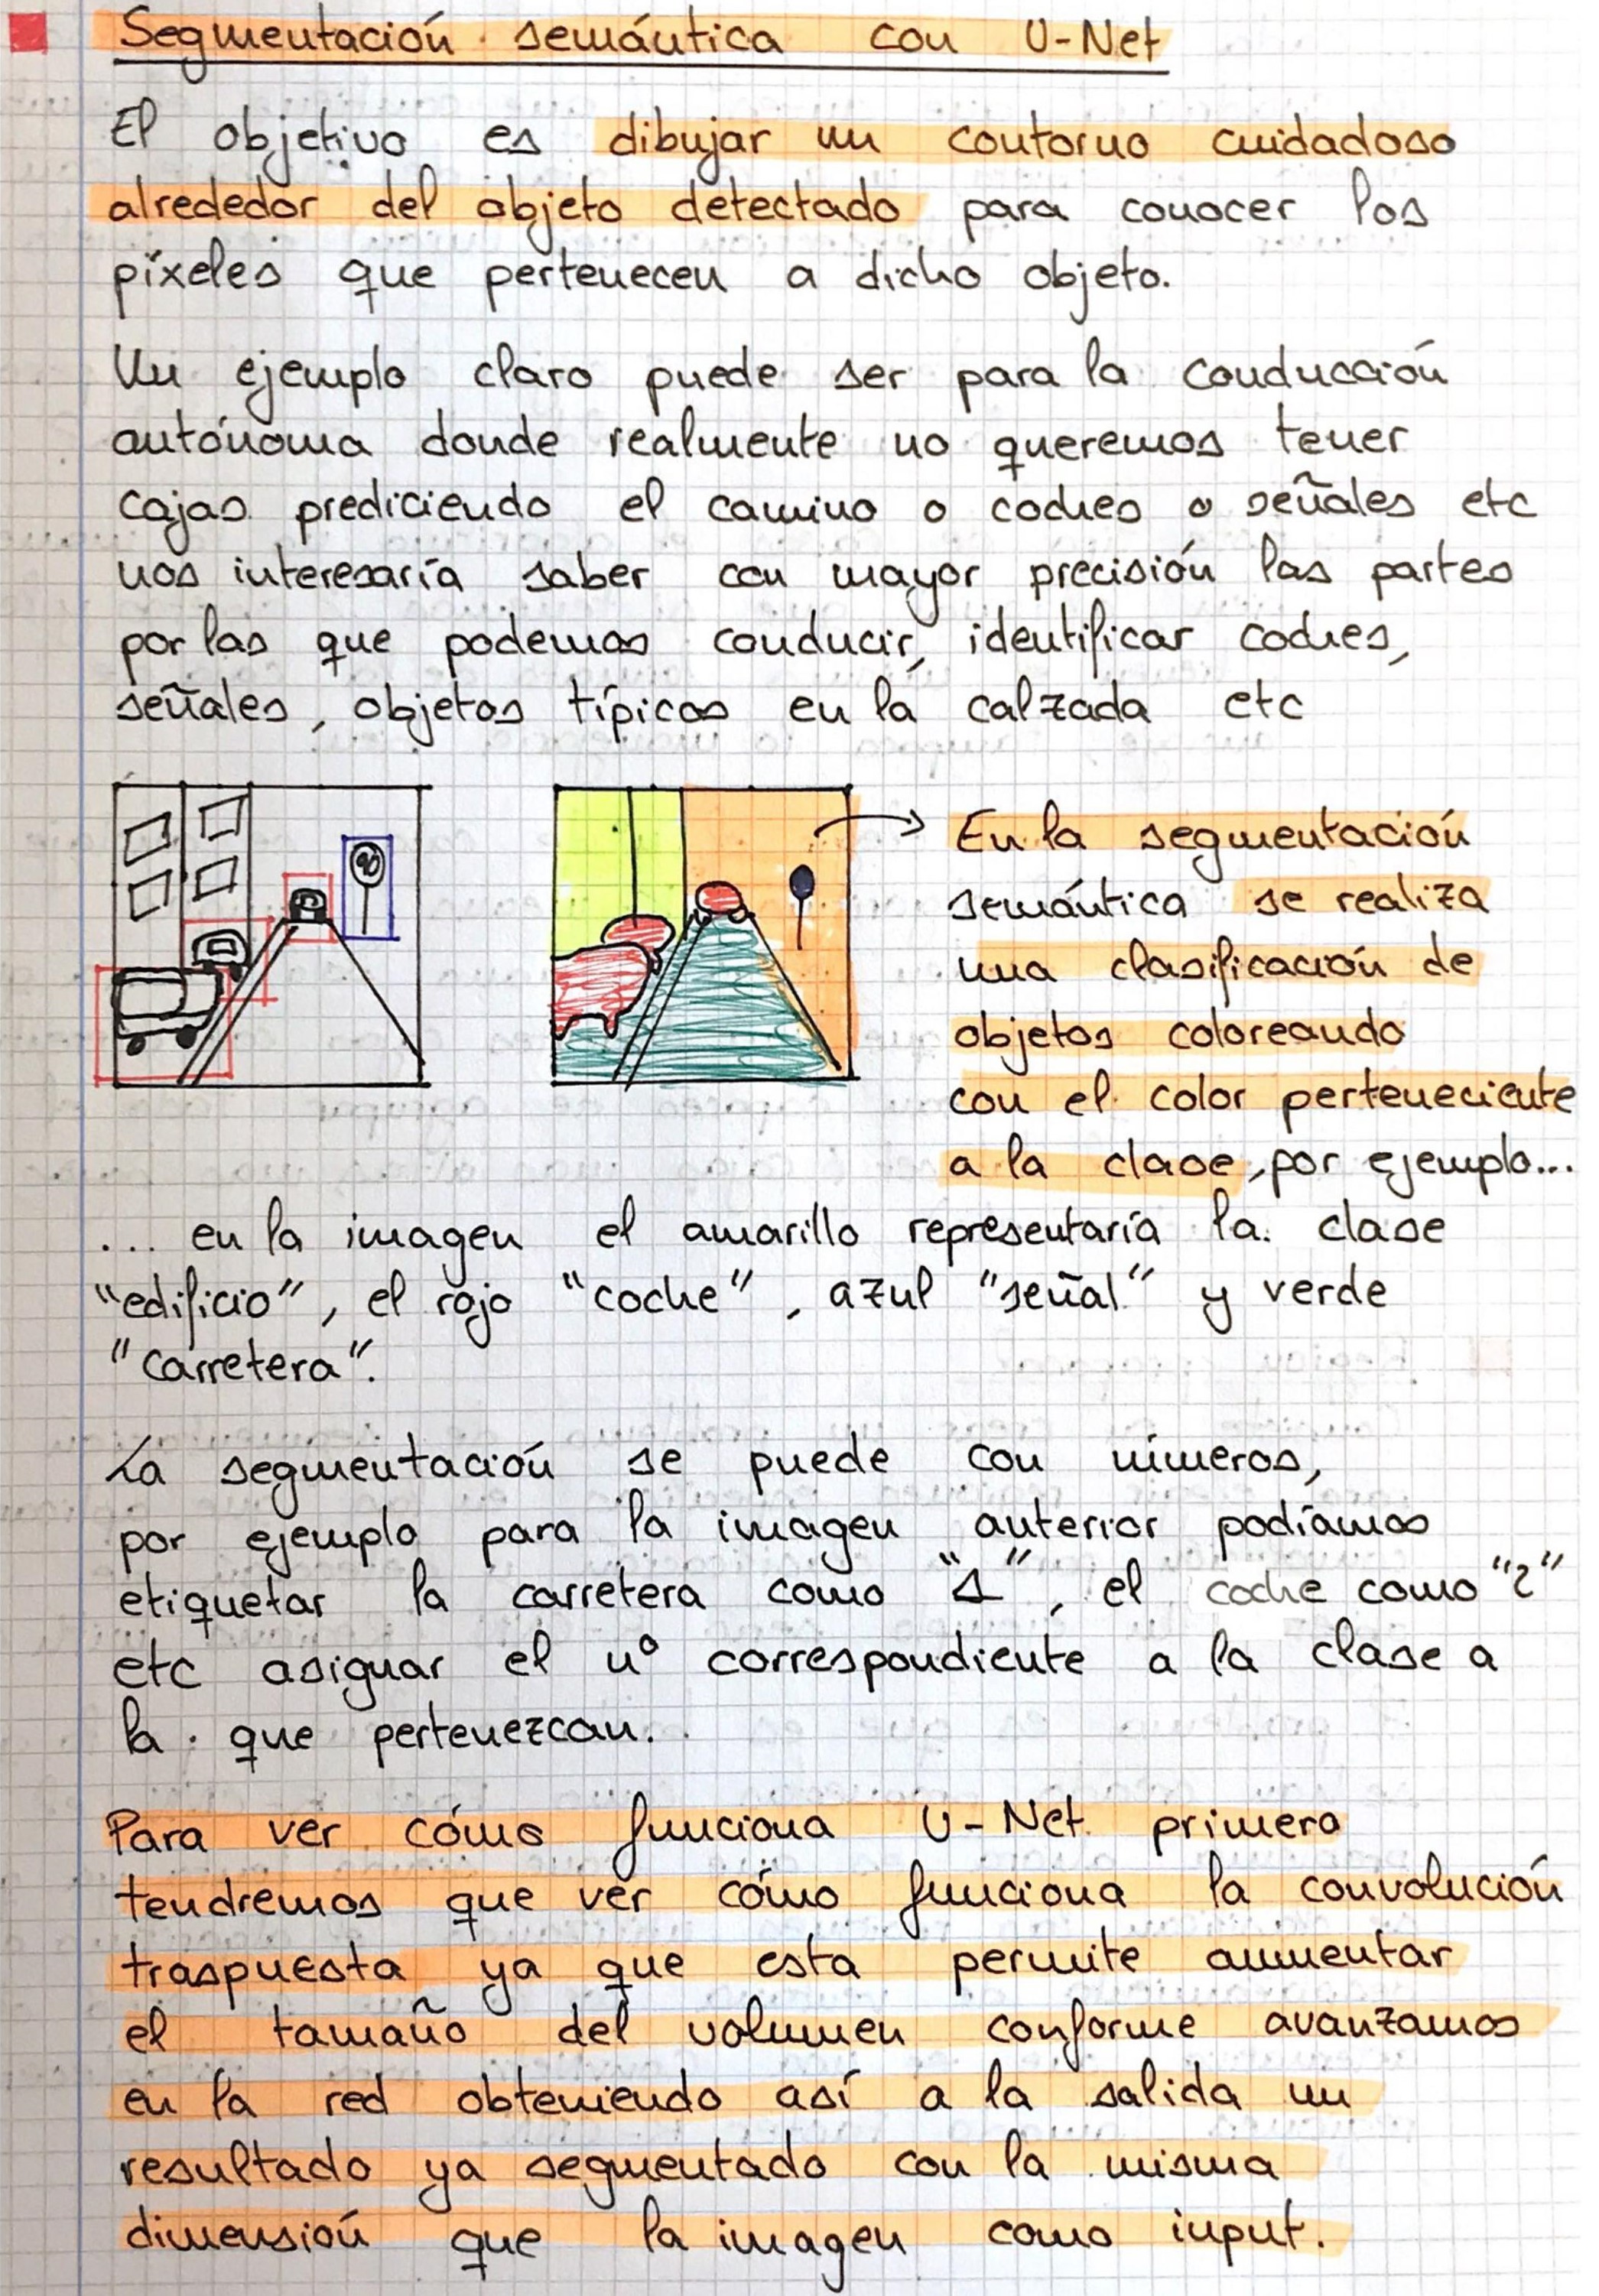 Segmentación semántica con U-Net
El objetivo es dibujar un contorno cuidadoso
alrededor del objeto detectado para conocer los
píxeles que pertenecen a dicho objeto.
Un ejemplo claro puede ser para la conducción
autónoma donde realmente no queremos tener
cajas prediciendo el camino o coches o señales etc
nos interesaría saber con mayor precisión las partes
por las que podemos conducir, identificar coches,
señales, objetos típicos en la calzada etc
En la segmentación
semántica se realiza
una clasificación de
objetos coloreando
con el color perteneciente
a la clase, por ejemplo...
... en la imagen el amarillo representaría la clase
"edificio", el rojo "coche", azul "señal" y verde
"carretera".
La segmentación se puede con números,
por ejemplo para la imagen anterior podíamos
etiquetar la carretera como "1", el coche como "2"
etc asignar el nº correspondiente a la clase a
la que pertenezcan.
Para ver cómo funciona U-Net primero
tendremos que ver cómo funciona la convolución
traspuesta ya que esta permite aumentar
el tamaño del volumen conforme avanzamos
en la red obteniendo así a la salida un
resultado ya segmentado con la misma
dimensión que la imagen como input.